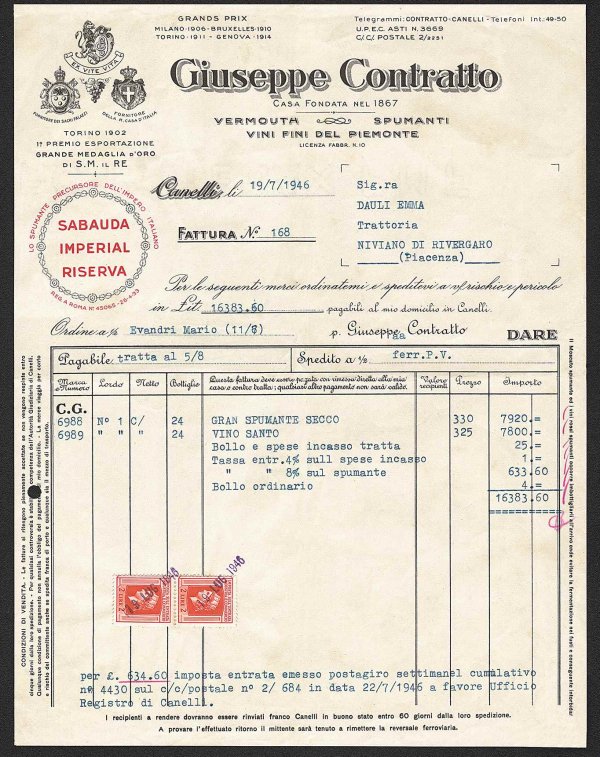 GRANDS PRIX
MILANO-1906-BRUXELLES-1910
TORINO-1911 - GENOVA-1914
Telegrammi: CONTRATTO-CANELLI - Telefoni Int: 49-50
U.P.E.C. ASTI N. 3669
C/C/ POSTALE 2/2251
EX VITE VITA
FORNITORE DEI SACRI PALAZZI
FORNITORE DELLA R. CASA D'ITALIA
Giuseppe Contratto
CASA FONDATA NEL 1867
VERMOUTH SPUMANTI
VINI FINI DEL PIEMONTE
LICENZA FABBR. N. 10
TORINO 1902
1º PREMIO ESPORTAZIONE
GRANDE MEDAGLIA D'ORO
DI S.M. IL RE
LO SPUMANTE PRECURSORE DELL'IMPERO ITALIANO
SABAUDA
IMPERIAL
RISERVA
REG. A ROMA Nº 45065-26-4-33
Canelli, li 19/7/1946
FATTURA N. 168
Sig.ra
DAULI EMMA
Trattoria
NIVIANO DI RIVERGARO
(Piacenza)
Per le seguenti merci ordinatemi e speditevi a v/ rischio e pericolo
in Lit. 16383.60 pagabili al mio domicilio in Canelli.
Ordine a/s Evandri Mario (11/6) p. Giuseppe Contratto
DARE
Pagabile tratta al 5/8 Spedito a ½ ferr.P.V.
Marca e Numero Lordo Netto Bottiglie Questa fattura deve essere pagata con rimessa diretta alla mia casa o contro tratta; qualsiasi altro pagamento non sarà valido. Valore recipienti Prezzo Importo
C.G.
6988 Nº 1 C/ 24 GRAN SPUMANTE SECCO 330 7920.=
6989 " " " 24 VINO SANTO 325 7800.=
Bollo e spese incasso tratta 25.=
Tassa entr.4% sull spese incasso 1.=
" " 8% sul spumante 633.60
Bollo ordinario 4.=
16383.60
19 LUG 1946
19 LUG 1946
2 LIRE 2
2 LIRE 2
per £. 634.60 imposta entrata emesso postagiro settimanel cumulativo
nº 4430 sul c/c/postale nº 2/ 684 in data 22/7/1946 a favore Ufficio
Registro di Canelli.
I recipienti a rendere dovranno essere rinviati franco Canelli in buono stato entro 60 giorni dalla loro spedizione.
A provare l'effettuato ritorno il mittente sarà tenuto a rimettere la reversale ferroviaria.
CONDIZIONI DI VENDITA. - Le fatture si ritengono pienamente accettate se non vengono respinte entro
cinque giorni dalla loro spedizione. - Per qualsiasi controversia è stabilita la competenza dell'Autorità Giudiziaria di Canelli.
Qualunque condizione di pagamento non annulla l'obbligo del pagamento al mio domicilio. - La merce viaggia per conto
e rischio del committente anche se spedita franca di porto e qualunque sia il mezzo di trasporto.